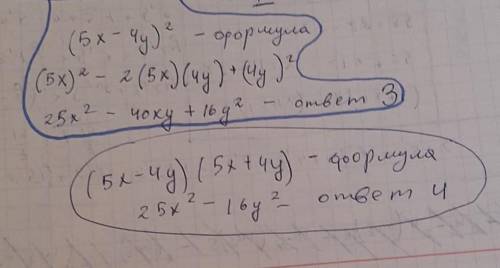 (5x - 4y)² - формула
(5x)² - 2(5x)(4y)+(4y)²
25x² - 40xy + 16y² - ответ 3
(5x-4y)(5x+4y) - формула
25x² - 16y² - ответ 4